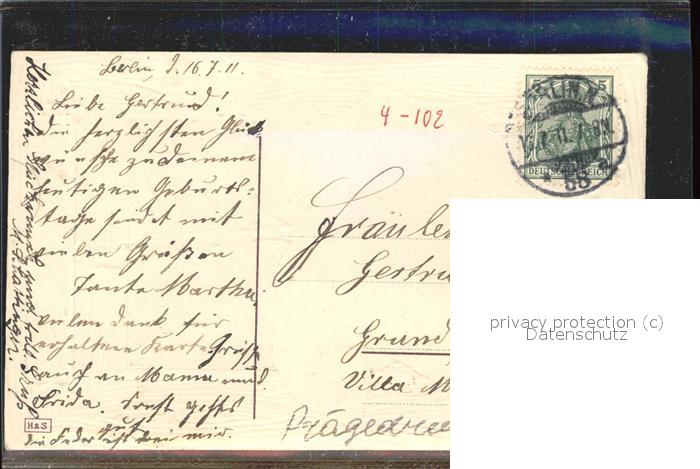 Berlin, d. 16.7.11.
Liebe Gertrud!
Die herzlichsten Glück
wünsche zu Deinem
heutigen Geburts-
tage sendet mit
vielen Grüßen
Tante Martha.
vielen Dank für
erhaltene Karte. Grüße
auch an Mama und
Frida. Sonst gehts
gut
die Feder ist bei mir.
Herzlichen Glückwunsch und
H&S
4-102
5 5
BERLIN
55
DEUTSCHES REICH
Fräulei
Gertru
Grand
Villa M
Prägedru
privacy protection (c)
Datenschutz